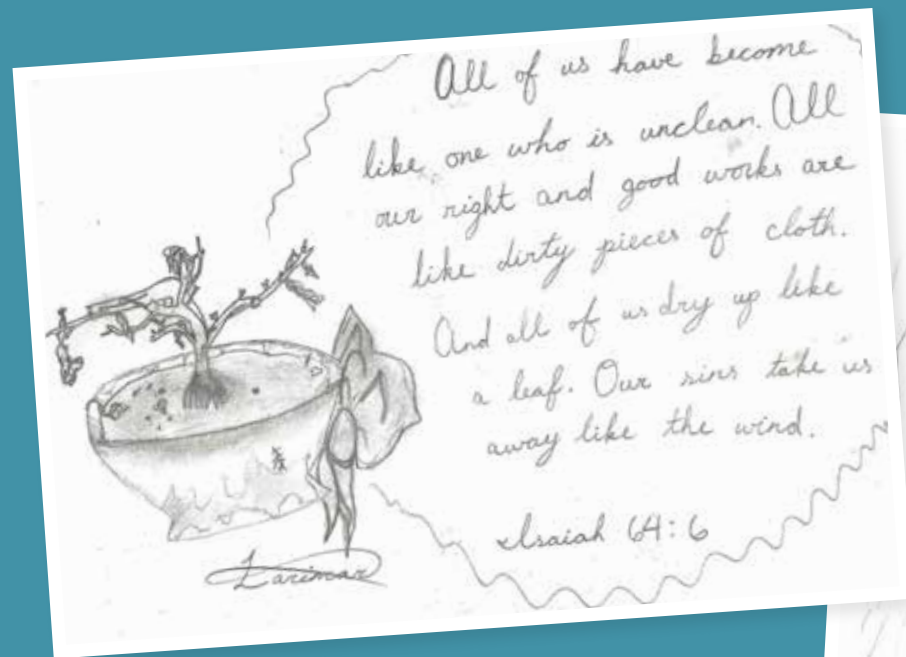 All of us have become
like one who is unclean. All
our right and good works are
like dirty pieces of cloth.
And all of us dry up like
a leaf. Our sins take us
away like the wind.
Isaiah 64:6
Larimar